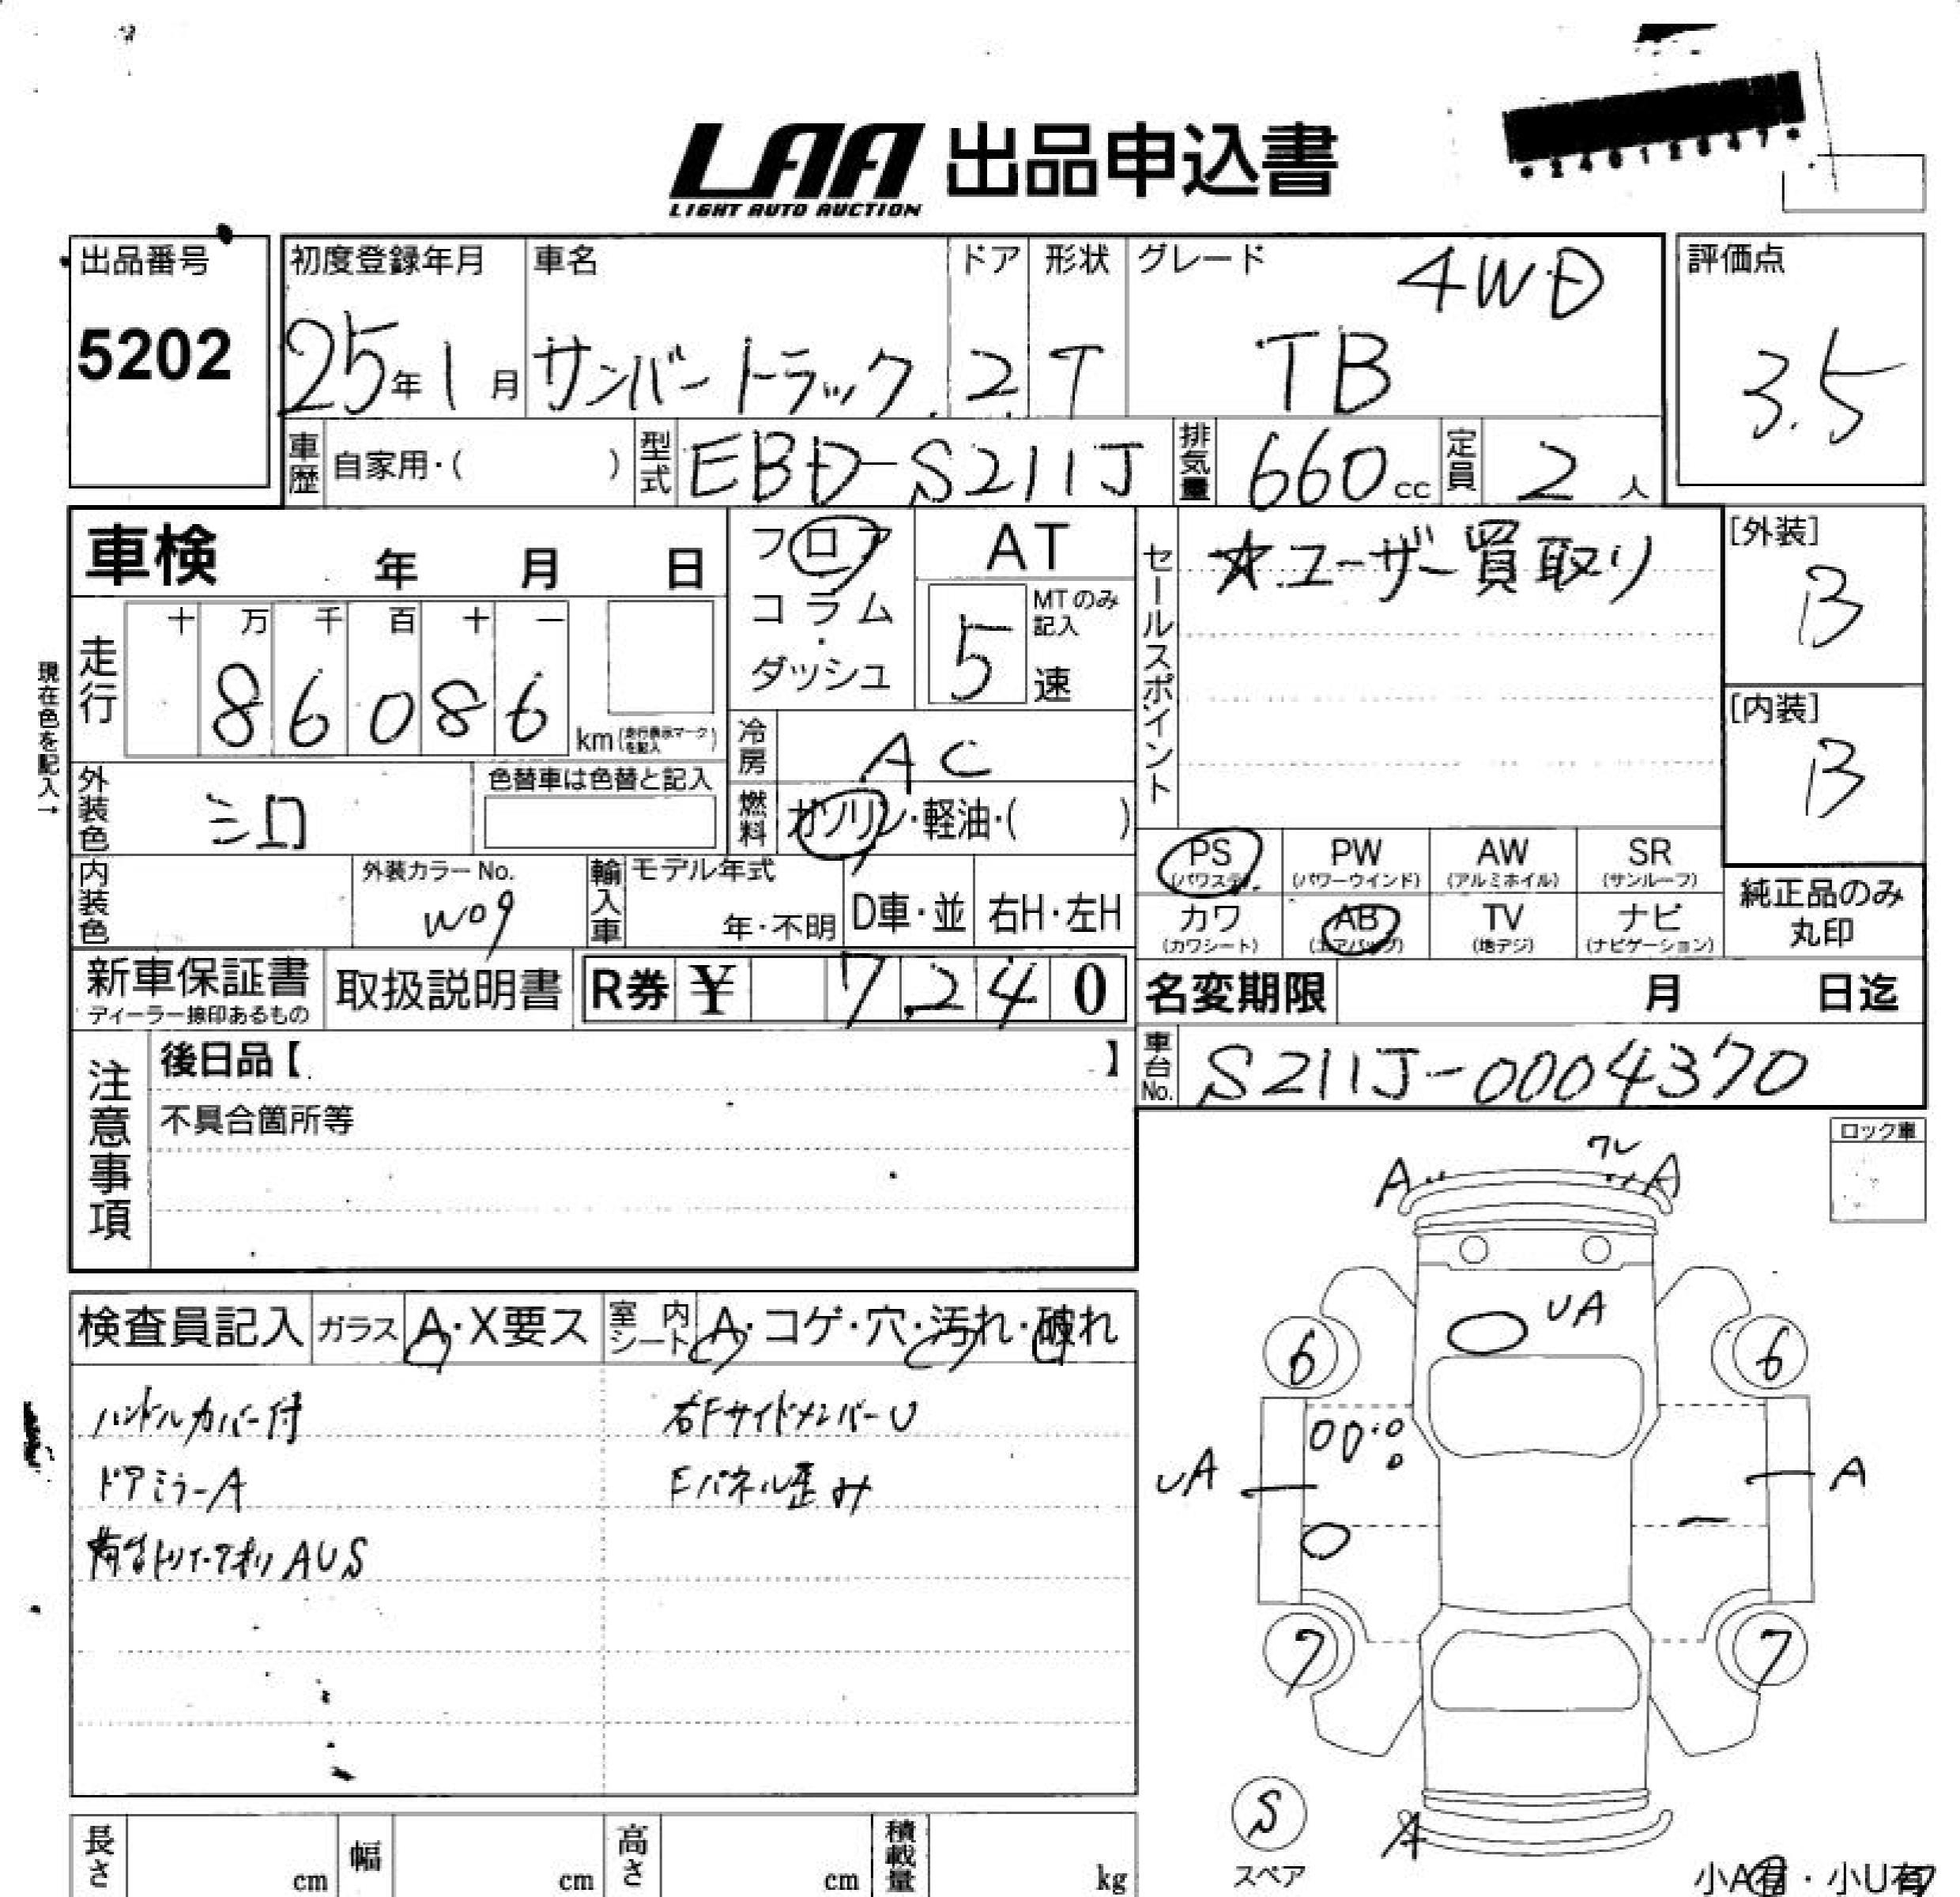 LAA 出品申込書
LIGHT AUTO AUCTION
*24012047*
出品番号
5202
初度登録年月 車名 ドア 形状 グレード
4WD
25年1月 サンバートラック 2 T TB
評価点
3.5
車歴 自家用・( ) 型式 EBD-S211J 排気量 660cc 定員 2人
車検 年 月 日
フロア
コラム
・
ダッシュ
AT
5 MTのみ記入
速
セールスポイント
☆ユーザー買取り
[外装]
B
[内装]
B
現在色を記入→
走行 十 万 千 百 十 一
86086 km(走行表示マークを記入)
冷房 AC
外装色 シロ
色替車は色替と記入
燃料 ガソリン・軽油・( )
PS PW AW SR
(パワステ) (パワーウインド) (アルミホイル) (サンルーフ)
内装色
外装カラーNo.
W09
輸入車 モデル年式
年・不明 D車・並 右H・左H
カワ AB TV ナビ
(カワシート) (エアバッグ) (地デジ) (ナビゲーション)
純正品のみ
丸印
新車保証書
ディーラー捺印あるもの
取扱説明書 R券 ¥ 7,240
名変期限 月 日迄
車台No. S211J-0004370
注意事項
後日品【 】
不具合箇所等
ロック車
ワレ
A A
UA
6 6
UA A
7 7
S
スペア
A
小A有・小U有
検査員記入 ガラス A・X要ス 室内シート A・コゲ・穴・汚れ・破れ
ハンドルカバー付 右FサイドメンバーU
ドアミラーA Fパネル歪み
荷台トリイ・アオリAUS
長さ cm 幅 cm 高さ cm 積載量 kg